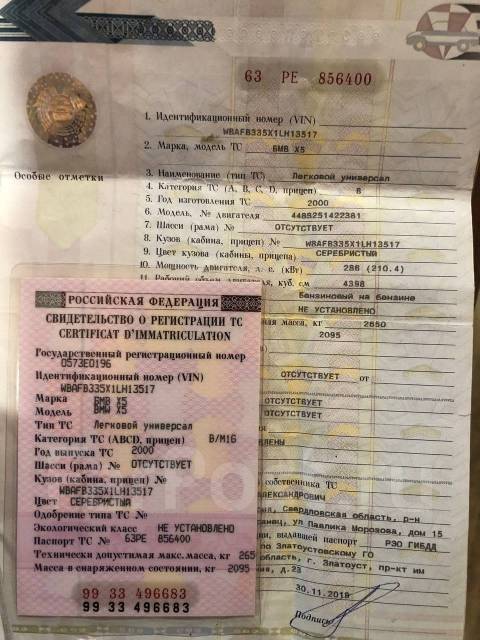 63 РЕ 856400
1. Идентификационный номер (VIN)
WBAFB335X1LH13517
2. Марка, модель ТС БМВ X5
Особые отметки
3. Наименование (тип ТС) Легковой универсал
4. Категория ТС (А, В, С, D, прицеп) В
5. Год изготовления ТС 2000
6. Модель, № двигателя 448S251422381
7. Шасси (рама) № ОТСУТСТВУЕТ
8. Кузов (кабина, прицеп) № WBAFB335X1LH13517
9. Цвет кузова (кабины, прицепа) СЕРЕБРИСТЫЙ
10. Мощность двигателя, л. с. (кВт) 286 (210.4)
11. Рабочий объем двигателя, куб. см 4398
Бензиновый на бензине
НЕ УСТАНОВЛЕНО
масса, кг 2650
2095
ОТСУТСТВУЕТ от
ОТСУТСТВУЕТ
ОТСУТСТВУЕТ
собственника ТС
АЛЕКСАНДРОВИЧ
Свердловская область, р-н
ул Павлика Морозова, дом 15
выдавшей паспорт РЭО ГИБДД
по Златоустовскому ГО
область, г. Златоуст, пр-кт им
д.23
30.11.2018
Подпись
РОССИЙСКАЯ ФЕДЕРАЦИЯ
СВИДЕТЕЛЬСТВО О РЕГИСТРАЦИИ ТС
CERTIFICAT D'IMMATRICULATION
Государственный регистрационный номер
О573ЕО196
Идентификационный номер (VIN)
WBAFB335X1LH13517
Марка БМВ X5
Модель BMW X5
Тип ТС Легковой универсал
Категория ТС (ABCD, прицеп) B/M1G
Год выпуска ТС 2000
Шасси (рама) № ОТСУТСТВУЕТ
Кузов (кабина, прицеп) №
WBAFB335X1LH13517
Цвет СЕРЕБРИСТЫЙ
Одобрение типа ТС №
Экологический класс НЕ УСТАНОВЛЕНО
Паспорт ТС № 63РЕ 856400
Технически допустимая макс. масса, кг 265
Масса в снаряженном состоянии, кг 2095
99 33 496683
99 33 496683